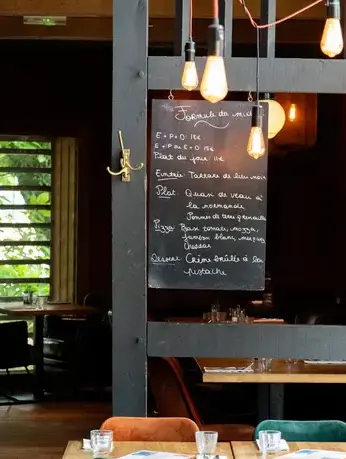 Formule du midi
E + P + D : 18€
E + P ou P + D : 15€
Plat du jour : 11€
Entrée : Tartare de lieu noir
Plat : Quasi de veau à
la normande
Pommes de terre grenouille
Pizza : Base tomate, mozza,
jambon blanc,
Cheddar
Dessert : Crème brûlée à la
pistache